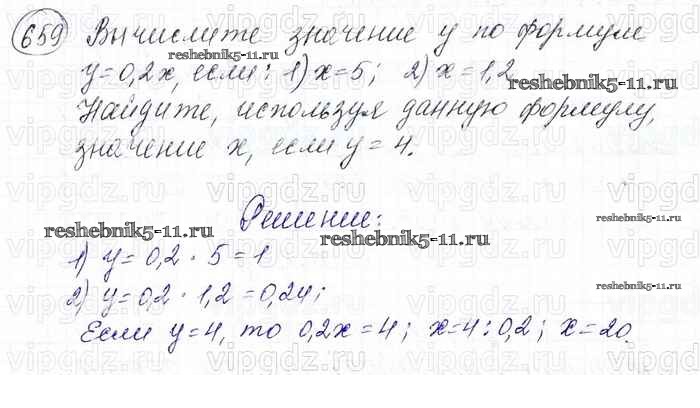 659 Вычислите значение y по формуле
reshebnik5-11.ru
y=0,2x, если: 1) x=5; 2) x=1,2
reshebnik5-11.ru
Найдите, используя данную формулу,
значение x, если y=4.
vipgdz.ru vipgdz.ru vipgdz.ru vipgdz
Решение:
reshebnik5-11.ru
reshebnik5-11.ru reshebnik5-11.ru
1) y=0,2 · 5=1
2) y=0,2 · 1,2=0,24;
reshebnik5-11.ru
Если y=4, то 0,2x=4; x=4:0,2; x=20.
vipgdz.ru vipgdz.ru vipgdz.ru vipgdz